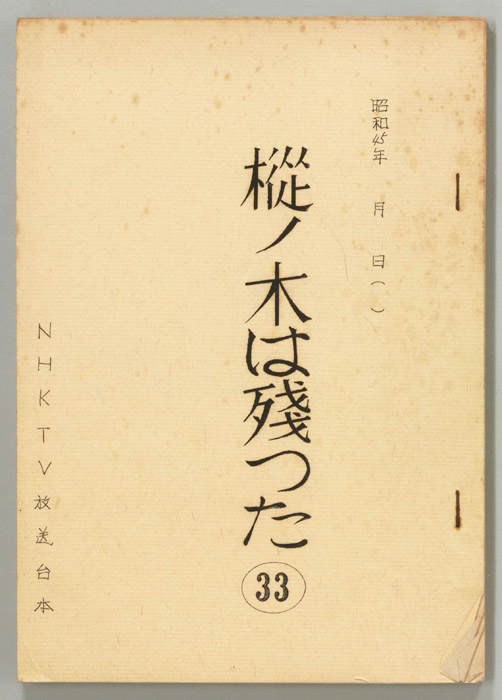 昭和45年　月　日（　）
樅ノ木は殘つた
33
NHKTV放送台本